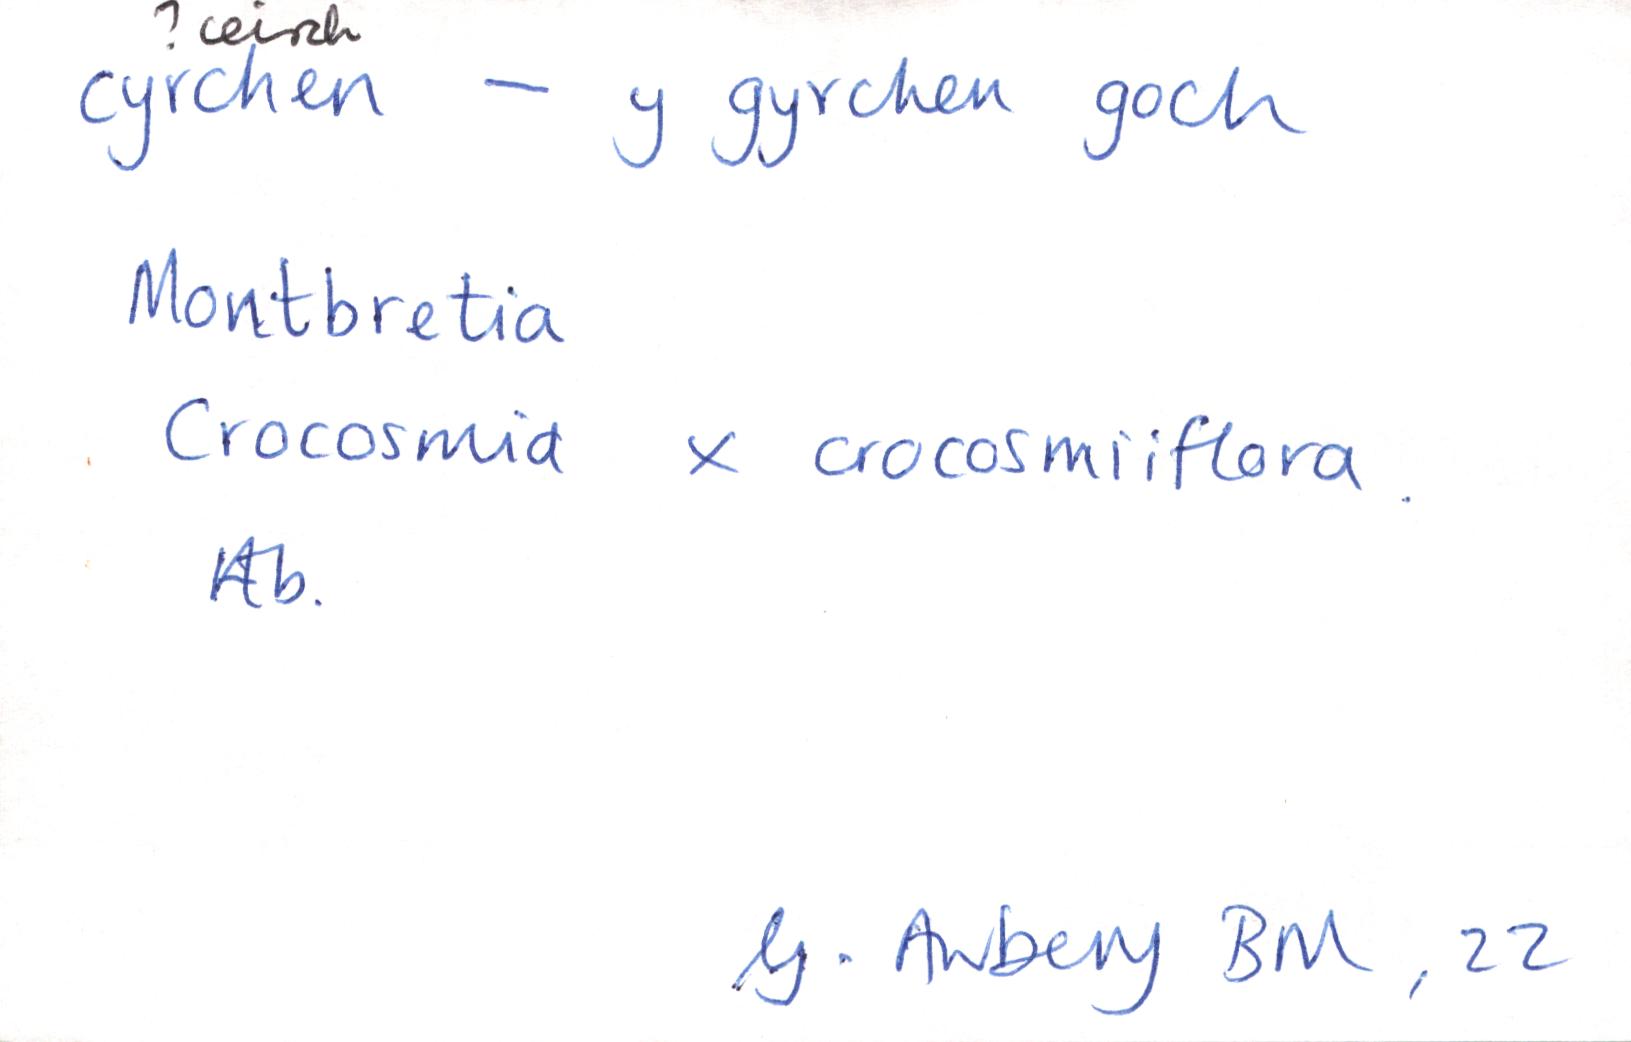 ? ceirch
cyrchen – y gyrchen goch
Montbretia
Crocosmia x crocosmiiflora.
Ab.
G. Awbery BM, 22